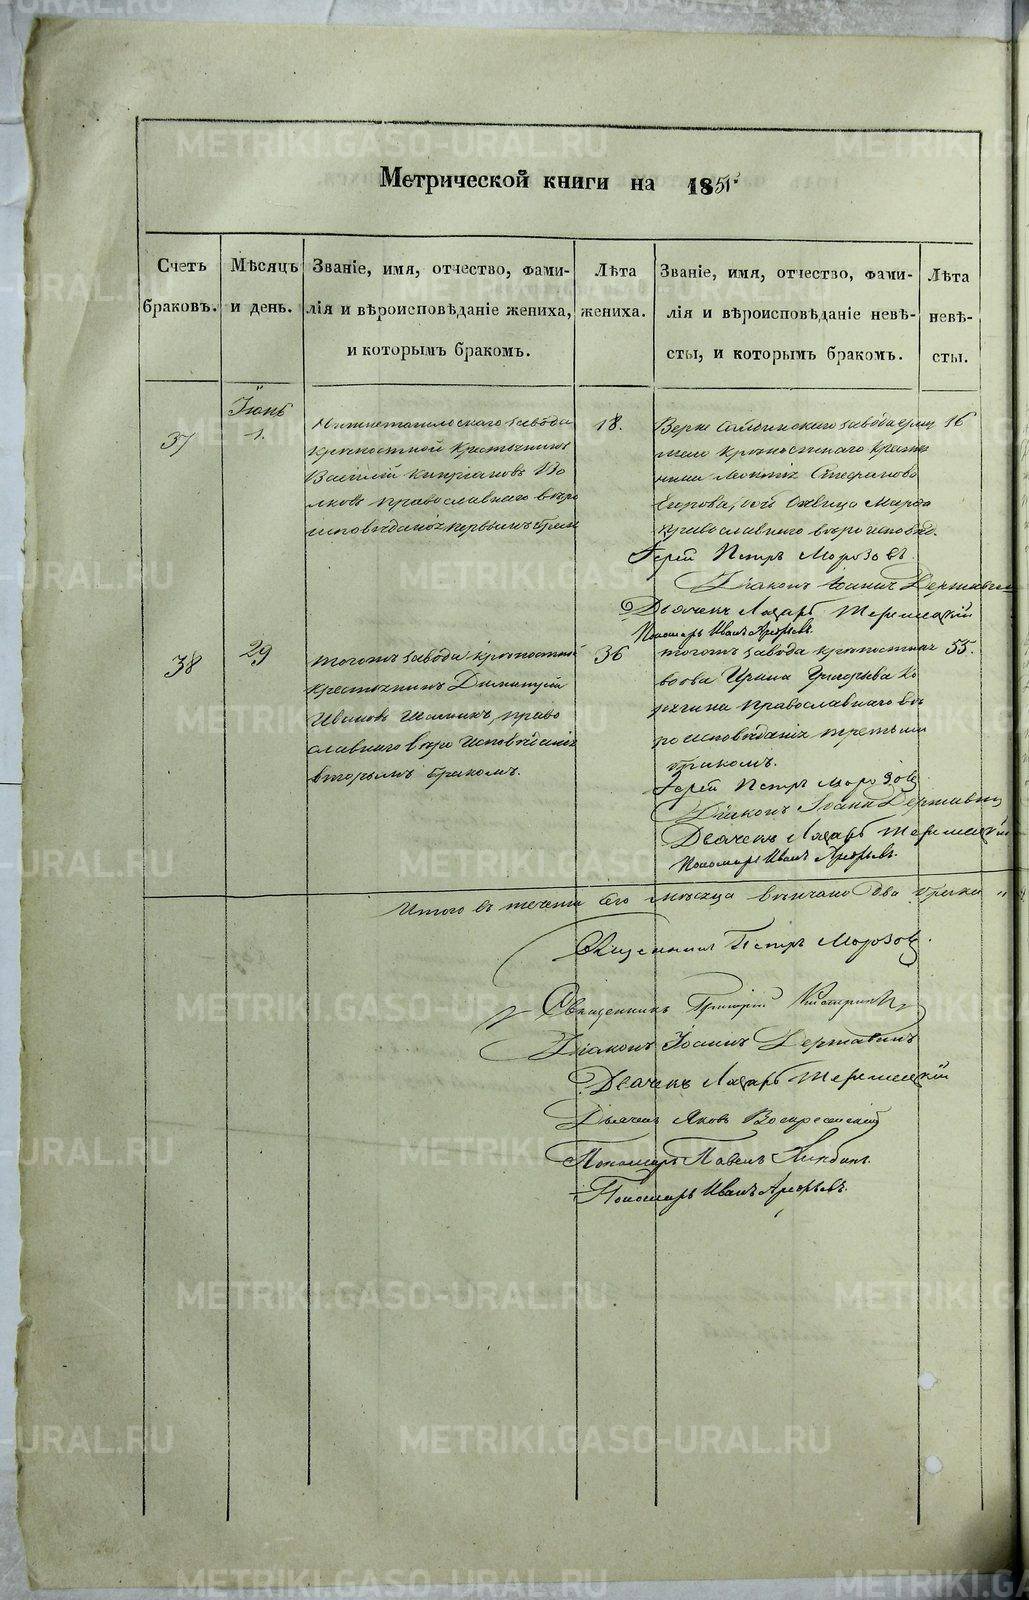 METRIKI.GASO-URAL.RU
Метрической книги на 1851
Счетъ браковъ.
Мѣсяцъ и день.
Званіе, имя, отчество, фами-
лія и вѣроисповѣданіе жениха,
и которымъ бракомъ.
Лѣта
жениха.
Званіе, имя, отчество, фами-
лія и вѣроисповѣданіе невѣ-
сты, и которымъ бракомъ.
Лѣта
невѣ-
сты.
37
Іюнь
1.
Нижнетагильскаго завода
крѣпостной крестьянинъ
Василій Кипріановъ Во
лковъ православнаго вѣро
исповѣданія первымъ брак
18.
Верхне Салдинскаго завода
крѣпостнаго крестья
нина Стефанова
Егорова, дѣвица Марфа
православнаго вѣроисповѣд.
16
Іерей Петръ Морозовъ.
Діаконъ Іоаннъ Державинъ
Дьячекъ Лазарь
Пономарь Иванъ
38
29
тогожъ завода крѣпостной
крестьянинъ Димитрій
Ивановъ право
славнаго вѣро исповѣданія
вторымъ бракомъ.
36
тогожъ завода крѣпостная
вдова Ирина Григорьева Ко
православнаго вѣ
роисповѣданія третьимъ
бракомъ.
55.
Іерей Петръ Морозовъ
Діаконъ Іоаннъ Державинъ
Дьячекъ Лазарь
Пономарь Иванъ
Итого въ течени сего мѣсяца вѣнчано два брака
Священникъ Петръ Морозовъ.
Священникъ Григорій
Діаконъ Іоаннъ Державинъ
Дьячекъ Лазарь
Дьячекъ Яковъ Воскресенскій
Пономарь Павелъ
Пономарь Иванъ